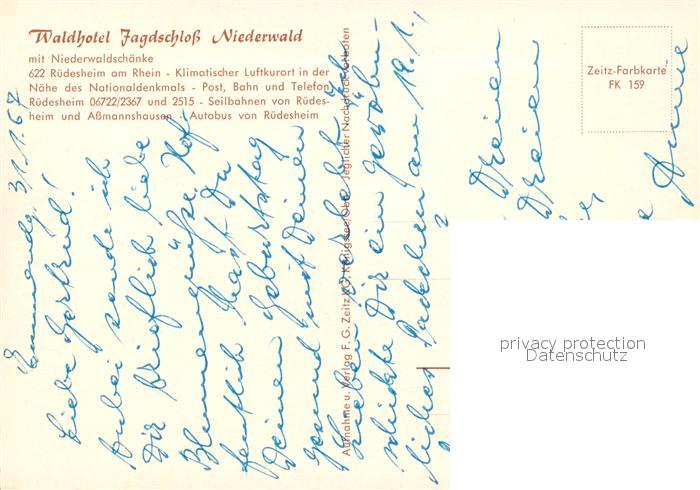 Waldhotel Jagdschloß Niederwald
mit Niederwaldschänke
622 Rüdesheim am Rhein - Klimatischer Luftkurort in der
Nähe des Nationaldenkmals - Post, Bahn und Telefon
Rüdesheim 06722/2367 und 2515 - Seilbahnen von Rüdes-
heim und Aßmannshausen - Autobus von Rüdesheim
Zeitz-Farbkarte
FK 159
Aufnahme u. Verlag F. G. Zeitz KG, Königssee/Obb. Jeglicher Nachdruck verboten
31.1.67
Liebe Gertrud!
Anbei sende ich
Dir brieflich liebe
Blumengrüße. Hof-
fentlich hast Du
Deinen Geburtstag
gesund mit Deinen
Lieben verlebt. Ich
schickte Dir ein gewöhn-
liches Päckchen am 19.1.,
Deinen
Deinen
Annie
privacy protection
Datenschutz